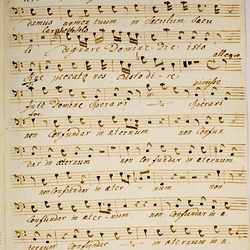 damus nomen tuum in saeculum saecu
larghetto
li dignare Domine die isto
allegro
sine peccato nos custodire
in te Domine speravi speravi
non confundar in aeternum non confun
dar in aeternum non confundar in
non confundar in aeter num non
confundar in aeternum non confundar in a
ternum confundar in aeternum in a